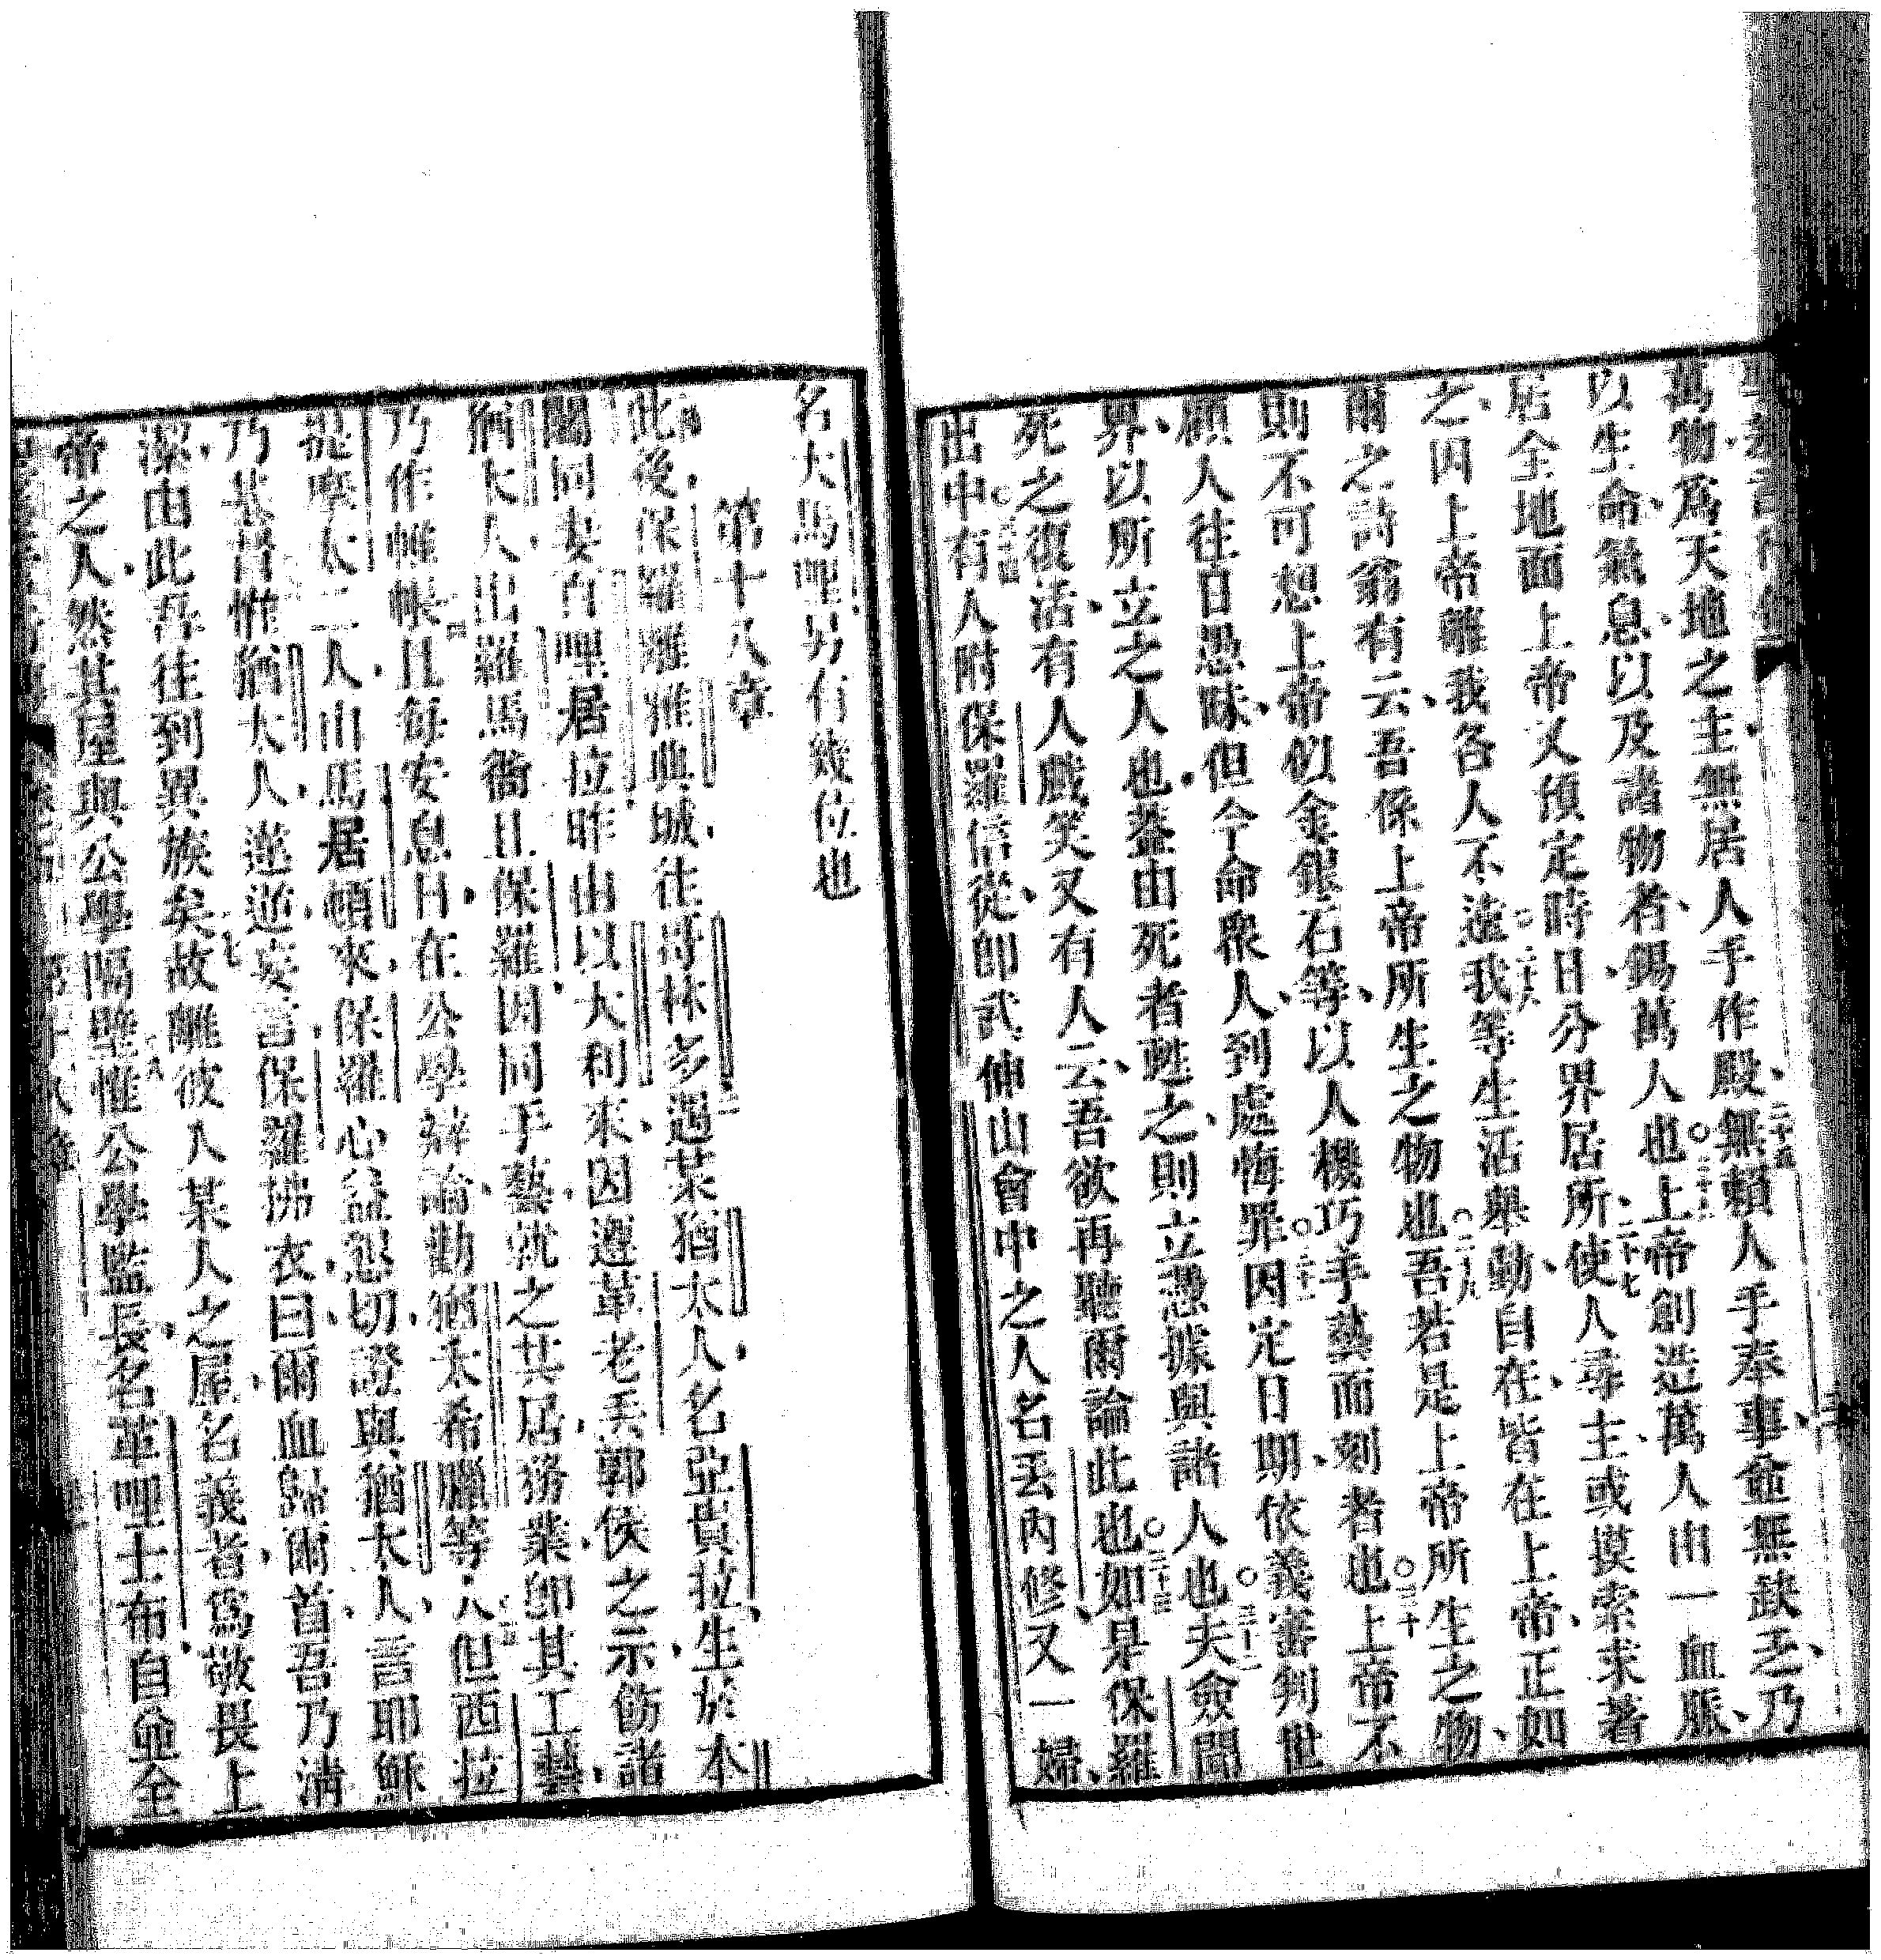 萬物、爲天地之主、無居人手作殿、二十五無賴人手奉事、僉無缺乏、乃
以生命、氣息、以及諸物者、錫萬人也○二十六上帝創造萬人出一血脈、
居全地面上帝又預定時日、分界居所、二十七使人尋主、或摸索求著
之、因上帝離我各人不遠○二十八我等生活舉動、自在、皆在上帝、正如
爾之詩翁有云、吾係上帝所生之物也○二十九吾若是上帝所生之物、
則不可想上帝似金銀石等、以人機巧手藝而刻者也○三十上帝不
顧人往日愚昧、但今命眾人、到處悔罪○三十一因定日期、依義審判世
界、以所立之人也、蓋由死者甦之、則立憑據與諸人也○三十二夫僉聞
死之復活、有人戲笑又有人云、吾欲再聽爾論此也○三十三如是保羅
出中有人附保羅信從、卽武伸山會中之人名丟內修、又一婦、
名大馬哩另有幾位也
第十八章
此後、保羅離雅典城、往哥林多、二遇某猶太人、名亞居拉、生於本
同妻百哩居拉、昨由以大利來、因遵革老丟郭侯之示、飭諸
猶太人、出羅馬、三且保羅、因同手藝、就之其居、務業、卽其工藝、
乃作帷帳、四且每安息日、在公學辯論、勸猶太希臘等人、五但西拉
提摩太二人、由馬居頓來、保羅心益懇切、證與猶太人、言耶穌
乃基督、六惟猶太人、逆妄言、保羅拂衣、曰、爾血歸爾首、吾乃淸
潔、由此吾往到異族矣、七故離彼入某人之屋、名義者、爲敬畏上
帝之人、然其屋與公學隔壁、八惟公學監長、名革哩士布、自並全